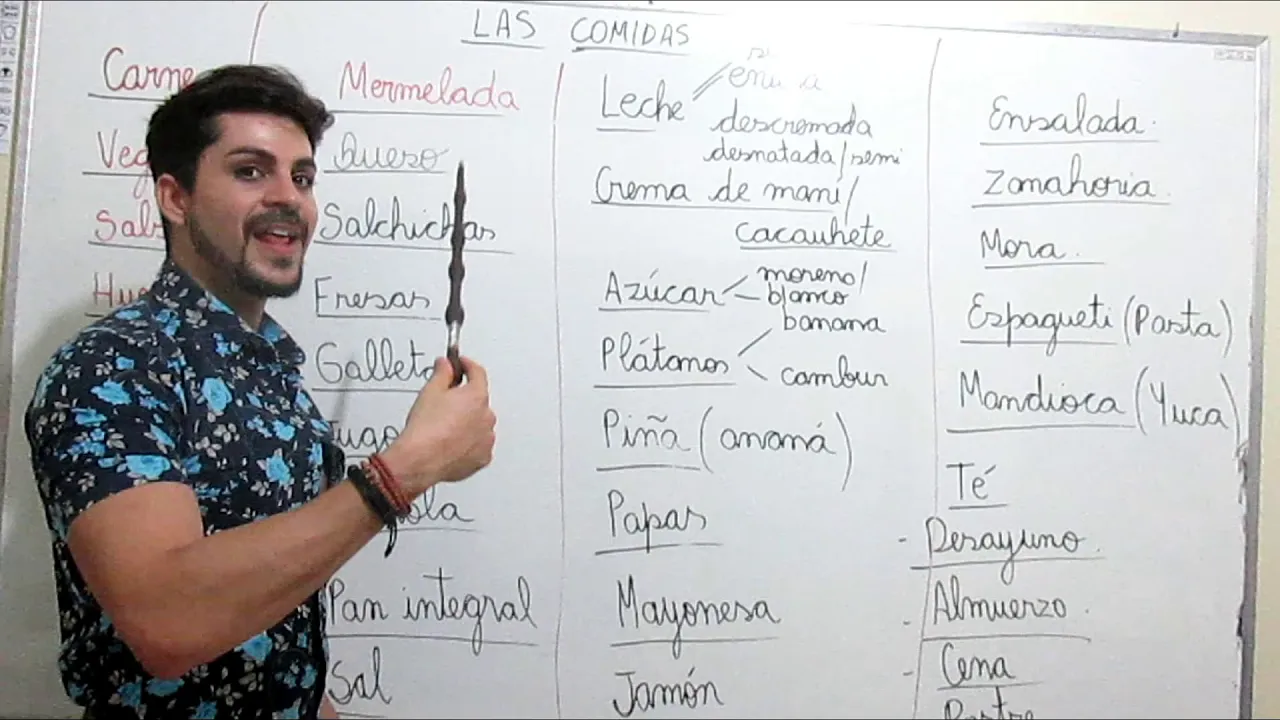 LAS COMIDAS
Carne
Mermelada
Queso
Salchichas
Fresas
Pan integral
Sal
Leche
descremada
desnatada/semi
Crema de maní/
cacauhete
Azúcar
moreno/
blanco
Plátanos
banana
cambur
Piña (ananá)
Papas
Mayonesa
Jamón
Ensalada.
Zanahoria.
Mora.
Espagueti (Pasta)
Mandioca (Yuca)
Té
- Desayuno.
- Almuerzo.
- Cena
Postre